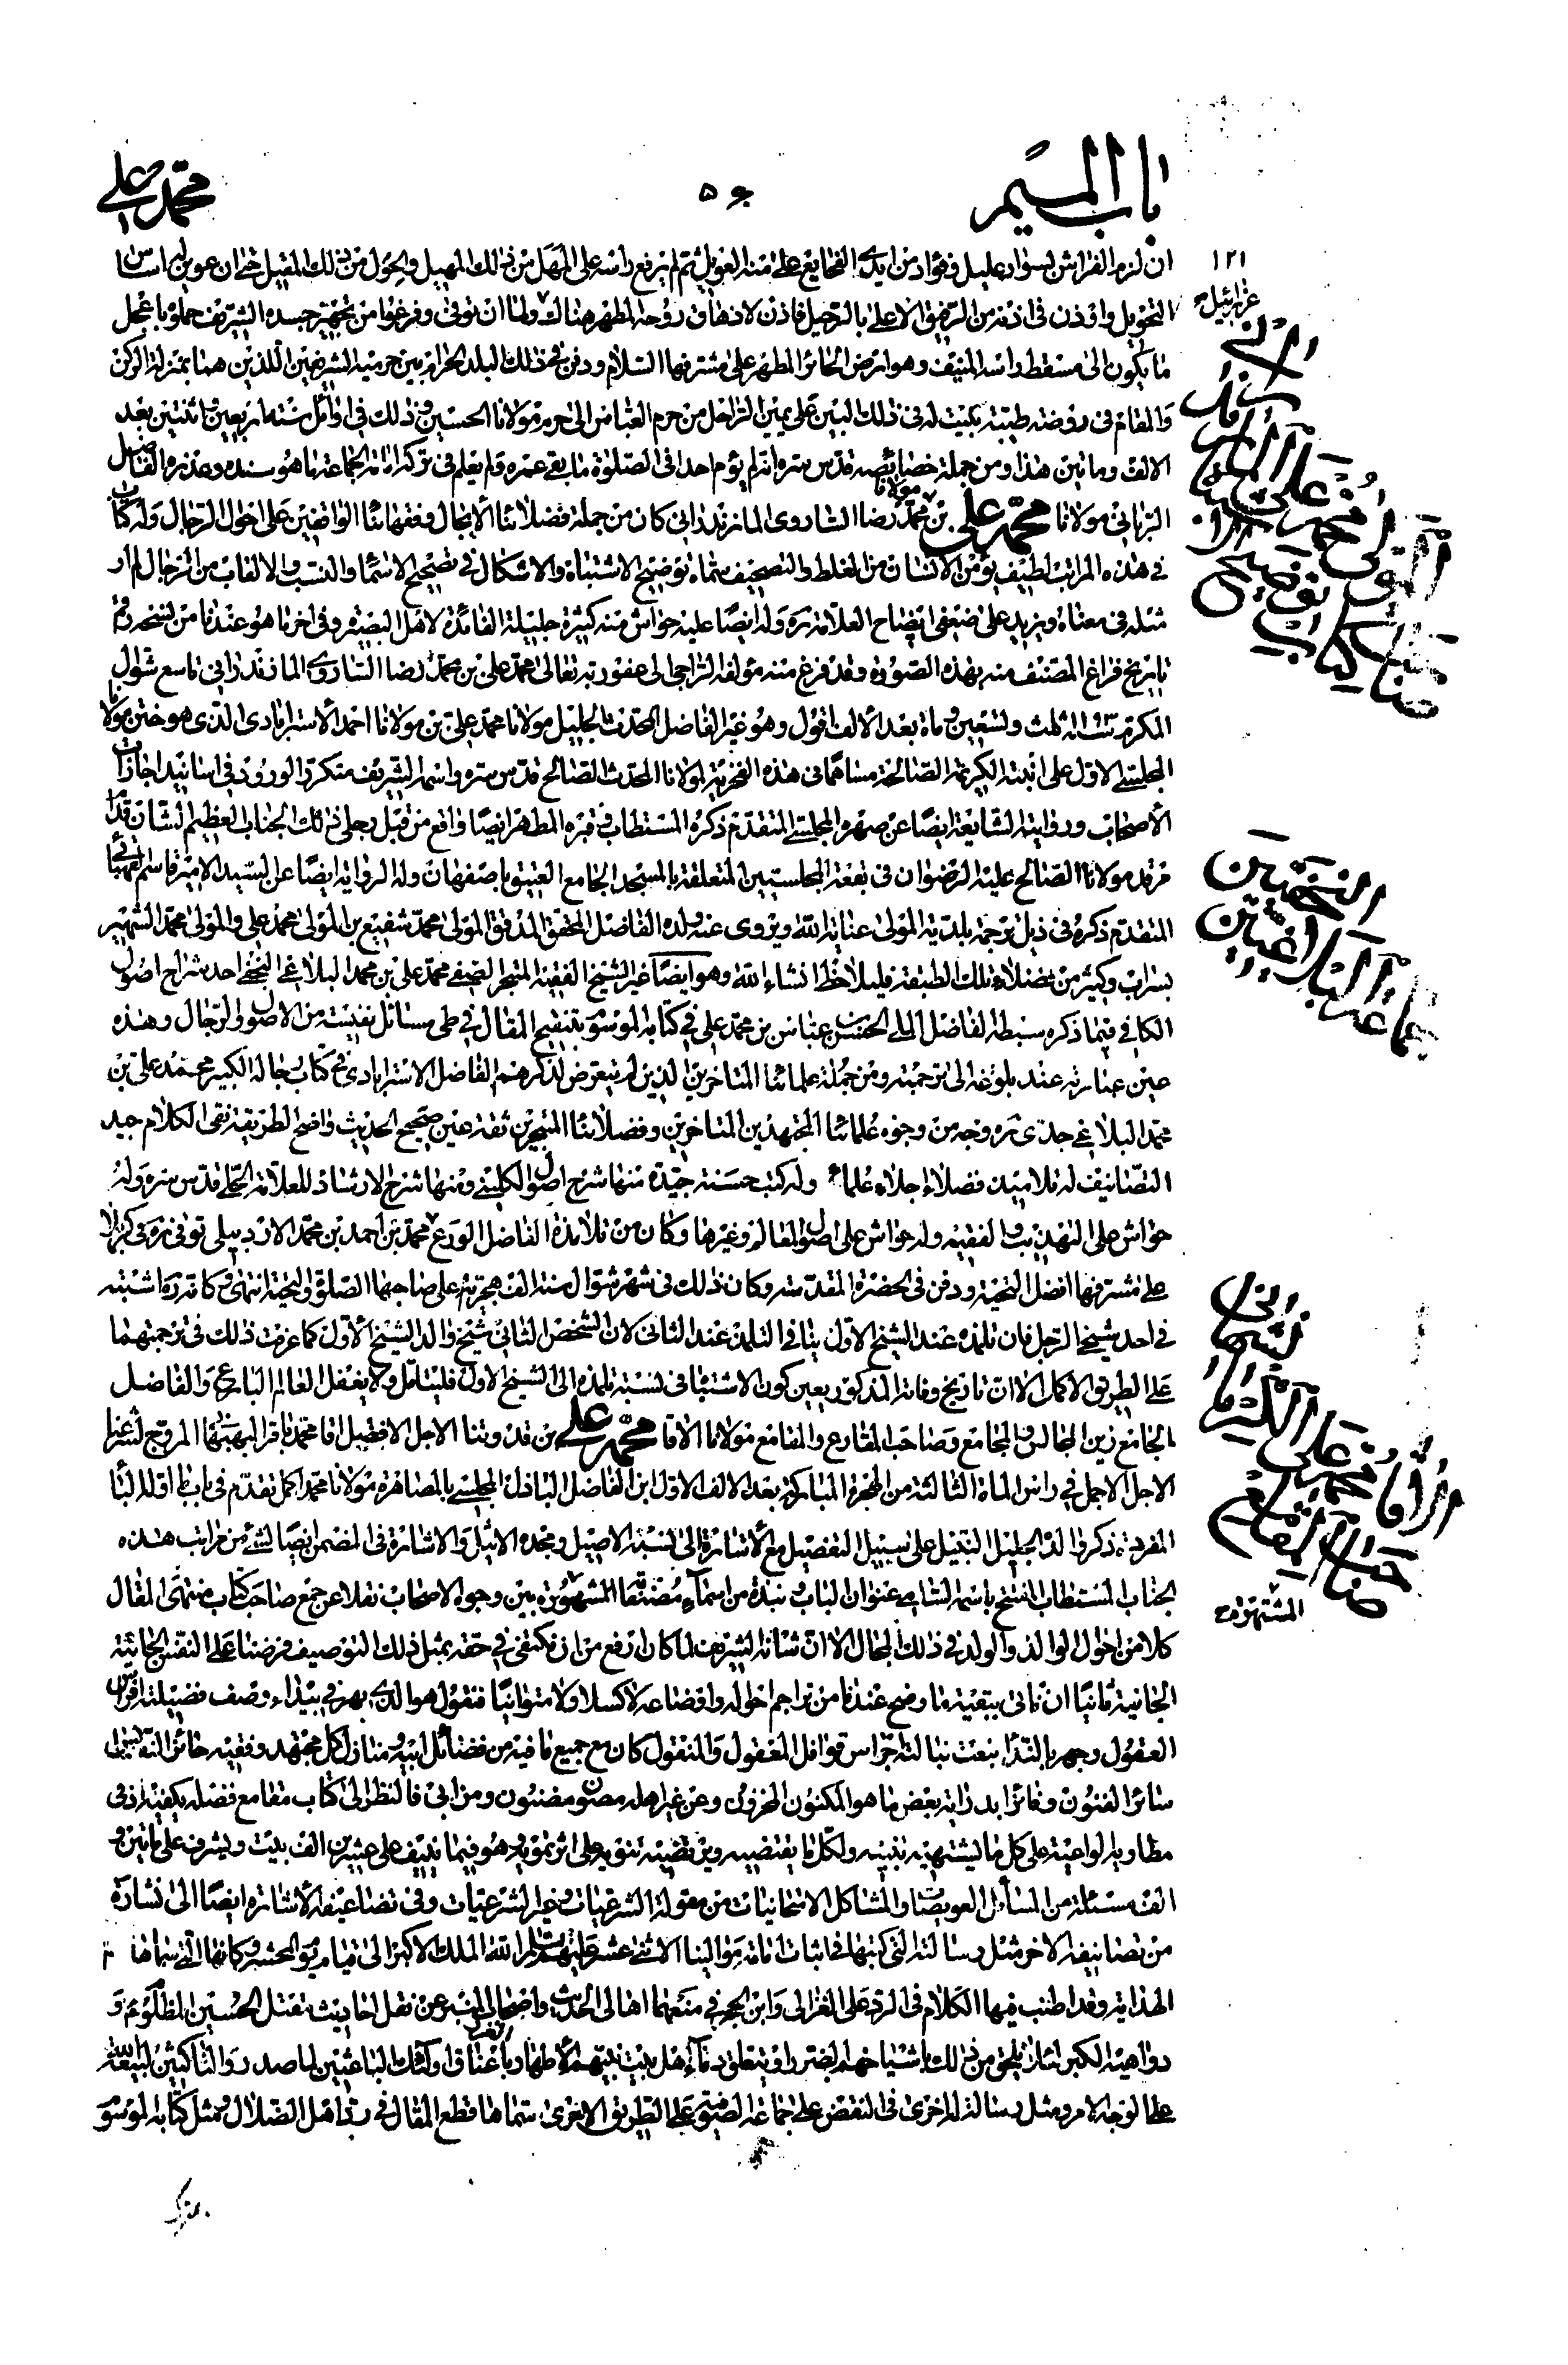 باب الميم
محمد علي
١٢١
ان لزم الفراش لسواد عليل وفؤاد من ايدي الفجايع على متنه الغويل ثم لم يرفع راسه على المهل من ذلك المهيل ولم يحول من ذلك المقيل حتى ان عوين اساس
التحويل واوذن في اذنه من الرفيق الاعلى بالرحيل فاذن لاذهاق روحه المطهر هنالك ولما ان توفى وفرغوا من تجهيز جسده الشريف حملوه باعجل
ما يكون الى مسقط راسه المنيف وهو ارض الحائر المطهر على مشرفها السلام ودفن في ذلك البلد الحرام بين حرميه الشريفين اللذين هما بمنزلة الركن
والمقام في روضة طيبة بنيت له في ذلك البين على يمين الراحل من حرم العباس الى حرم مولانا الحسين وذلك في اوائل سنة اربعين بعد
الالف وماتين هذا ومن جملة خصايصه قدس سره انه لم يؤم احدا في الصلوة ما بقى عمره ولم يعلم في تركه امامة الجماعة ما هو سنده وعذره الفاضل
الرباني مولانا محمد علي بن مولانا محمد رضا الساروى المازندراني كان من جملة فضلائنا الانجال وفقهائنا الواقفين على احوال الرجال وله كتاب
في هذه المراتب لطيف يؤمن الانسان من الغلط والتصحيف سماه توضيح الاشتباه والاشكال في تصحيح الاسماء والنسب والالقاب من الرجال لم ار
مثله في معناه ويزيد على ضعفى ايضاح العلامة ره وله ايضا عليه حواش منه كثيرة جليلة الفائدة لاهل البصيره وفي اخر ما هو عندنا من نسخه رقم
تاريخ فراغ المصنف منه بهذه الصورة وقد فرغ منه مؤلفه الراجى الى عفو ربه تعالى محمد علي بن محمد رضا الساروى المازندراني تاسع شوال
المكرم سنة ثلث وتسعين وماة بعد الالف اقول وهو غير الفاضل المحدث الجليل مولانا محمد علي بن مولانا احمد الاسترابادى الذى هو ختن مولانا
المجلسي الاول على ابنته الكريمة الصالحة مساهما في هذه الفخرية لمولانا المحدث الصالح قدس سره واسمه الشريف متكرر الورود في اسانيد اجازات
الأصحاب وروايته الشايعة ايضا عن صهره المجلسي المتقدم ذكره المستطاب وقبره المطهر ايضا واقع من قبل رجلي ذلك الجناب العظيم الشان قدام
مرقد مولانا الصالح عليه الرضوان في بقعة المجلسيين المتعلقة بالمسجد الجامع العتيق باصفهان وله الرواية ايضا عن السيد الامير قاسم القهبائي
المتقدم ذكره في ذيل ترجمة بلديه المولى عناية الله ويروى عنه ولده الفاضل المحقق المدقق المولى محمد شفيع بن المولى محمد علي والمولى محمد الشهير
بسراب وكثير من فضلاء تلك الطبقة فليلاحظ انشاء الله وهو ايضا غير الشيخ الفقيه المتبحر الصفي محمد علي بن محمد البلاغي النجفي احد شراح اصول
الكافي فيما ذكره سبطه الفاضل الملي الحسن بن عباس بن محمد علي في كتابه الموسوم بتنقيح المقال في طى مسائل نفيسة من الاصول والرجال وهذه
عين عبارته عند بلوغه الى ترجمته ومن جملة علمائنا المتاخرين الذين لم يتعرض لذكرهم الفاضل الاسترابادى في كتاب رجاله الكبير محمد علي بن
محمد البلاغي جدى ره وجه من وجوه علمائنا المجتهدين المتاخرين وفضلائنا المتبحرين ثقة عين صحيح الحديث واضح الطريقة نقى الكلام جيد
التصانيف له تلاميذ فضلاء اجلاء علماء وله كتب حسنة جيدة منها شرح اصول الكليني ومنها شرح الارشاد للعلامة الحلي قدس سره وله
حواش على التهذيب والفقيه وله حواش على اصول المعالم وغيرها وكان من تلامذة الفاضل الورع محمد بن احمد بن محمد الاردبيلي توفى ره في كربلا
على مشرفها افضل التحية ودفن في الحضرة المقدسة وكان ذلك في شهر شوال سنة الف هجرية على صاحبها الصلوة والتحية انتهى وكانه ره اشتبه
في احد شيخي الرجل فان تلمذه عند الشيخ الاول ينافي التلمذ عند الثاني لان الشخص الثاني شيخ والد الشيخ الاول كما عرفت ذلك في ترجمتهما
على الطريق الاكمل الا ان تاريخ وفاته المذكور يعين كون الاشتباه في نسبة تلمذه الى الشيخ الاول فليتامل ولا يغفل العالم البارع والفاضل
الجامع زين المجالس والمجامع وصاحب المقارع والمقامع مولانا الاقا محمد علي بن قدوتنا الاجل الافضل اقا محمد باقر البهبهاني المروج لشرعنا
الاجل الاجمل في راس الماة الثالثة من الهجرة المباركة بعد الالف الاول ابن الفاضل الباذل المجلسي بالمصاهرة مولانا محمد اكمل تقدم في باب ما اوله الباء
المفردة ذكر والده الجليل النبيل على سبيل التفصيل مع الاشارة الى نسبه الاصيل ومجده الاثيل والاشارة في المضمن ايضا لشئ من مراتب هذه
الجناب المستطاب المفتتح باسمه الشامي عنوان الباب ونبذة من اسماء مصنفاتها المشهورة بين وجوه الاصحاب نقلا عن جمع صاحب كتاب منتهى المقال
كلا من احوال الوالد والولد في ذلك المجال الا ان شانه الشريف لما كان ارفع من ان نكتفى في حقه بمثل ذلك التوصيف فرضنا على النفس الجانية
الجانية ثانيا ان ناتى ببقية ما وضح عندنا من تراجم احواله واوضاعه لا كسلا ولا متوانيا فنقول هو الذى بهر في بيداء وصف فضيلته افراس
العقول وجهر بالنداء بنعت نبالته جراس قوافل المعقول والمنقول كان مع جميع ما فيه من فضائل ابيه ومنازل كل مجتهد وفقيه حائز التقدم في
سائر الفنون وفائزا بدراية بعض ما هو المكنون المخزون وعن غير اهله مصون مضنون ومن ابى فالنظر الى كتاب مقامع فضله يكفيه اذ في
مطاويه الواعية على كل ما يشتهيه نبيه ولكل ما يقتضيه ويرتضيه تنويه على اثر تمويه وهو فيما ينيف على عشرين الف بيت ويشرف على ماتين و
الف مسئلة من المسائل العويصات والمشاكل الامتحانيات من مقولة الشرعيات وغير الشرعيات وفي تضاعيفه الاشارة ايضا الى نشارة
من تصانيفه الاخر مثل رسالته التى كتبها في اثبات امامة موالينا الاثنى عشر عليهم سلام الله الملك الاكبر الى قيام يوم الحشر وكانها التى سماها
الهداية وقد اطنب فيها الكلام في الرد على الغزالى وابن الحجر في منعهما اهالى الحديث واصحاب المنبر عن نقل احاديث مقتل الحسين المظلوم و
دواهيه الكبر لئلا يلحق من ذلك باشياخهم الضرر او يتعلق دماء اهل بيت نبيهم الاطهار باعناق اولئك الباعثين لما صدر والناكثين لبيعة الله
على الوجه الامر ومثل رسالته الاخرى في النقض على جماعة الصوفية على الطريق الاغرى سماها قطع المقال في رد اهل الضلال ومثل كتابه الموسوم
عزرائيل
المولى محمد علي
صاحب كتاب توضيح
الشخصين البلاغيين
الاقا محمد علي الكرمانشاهاني
صاحب المقامع
المشهور